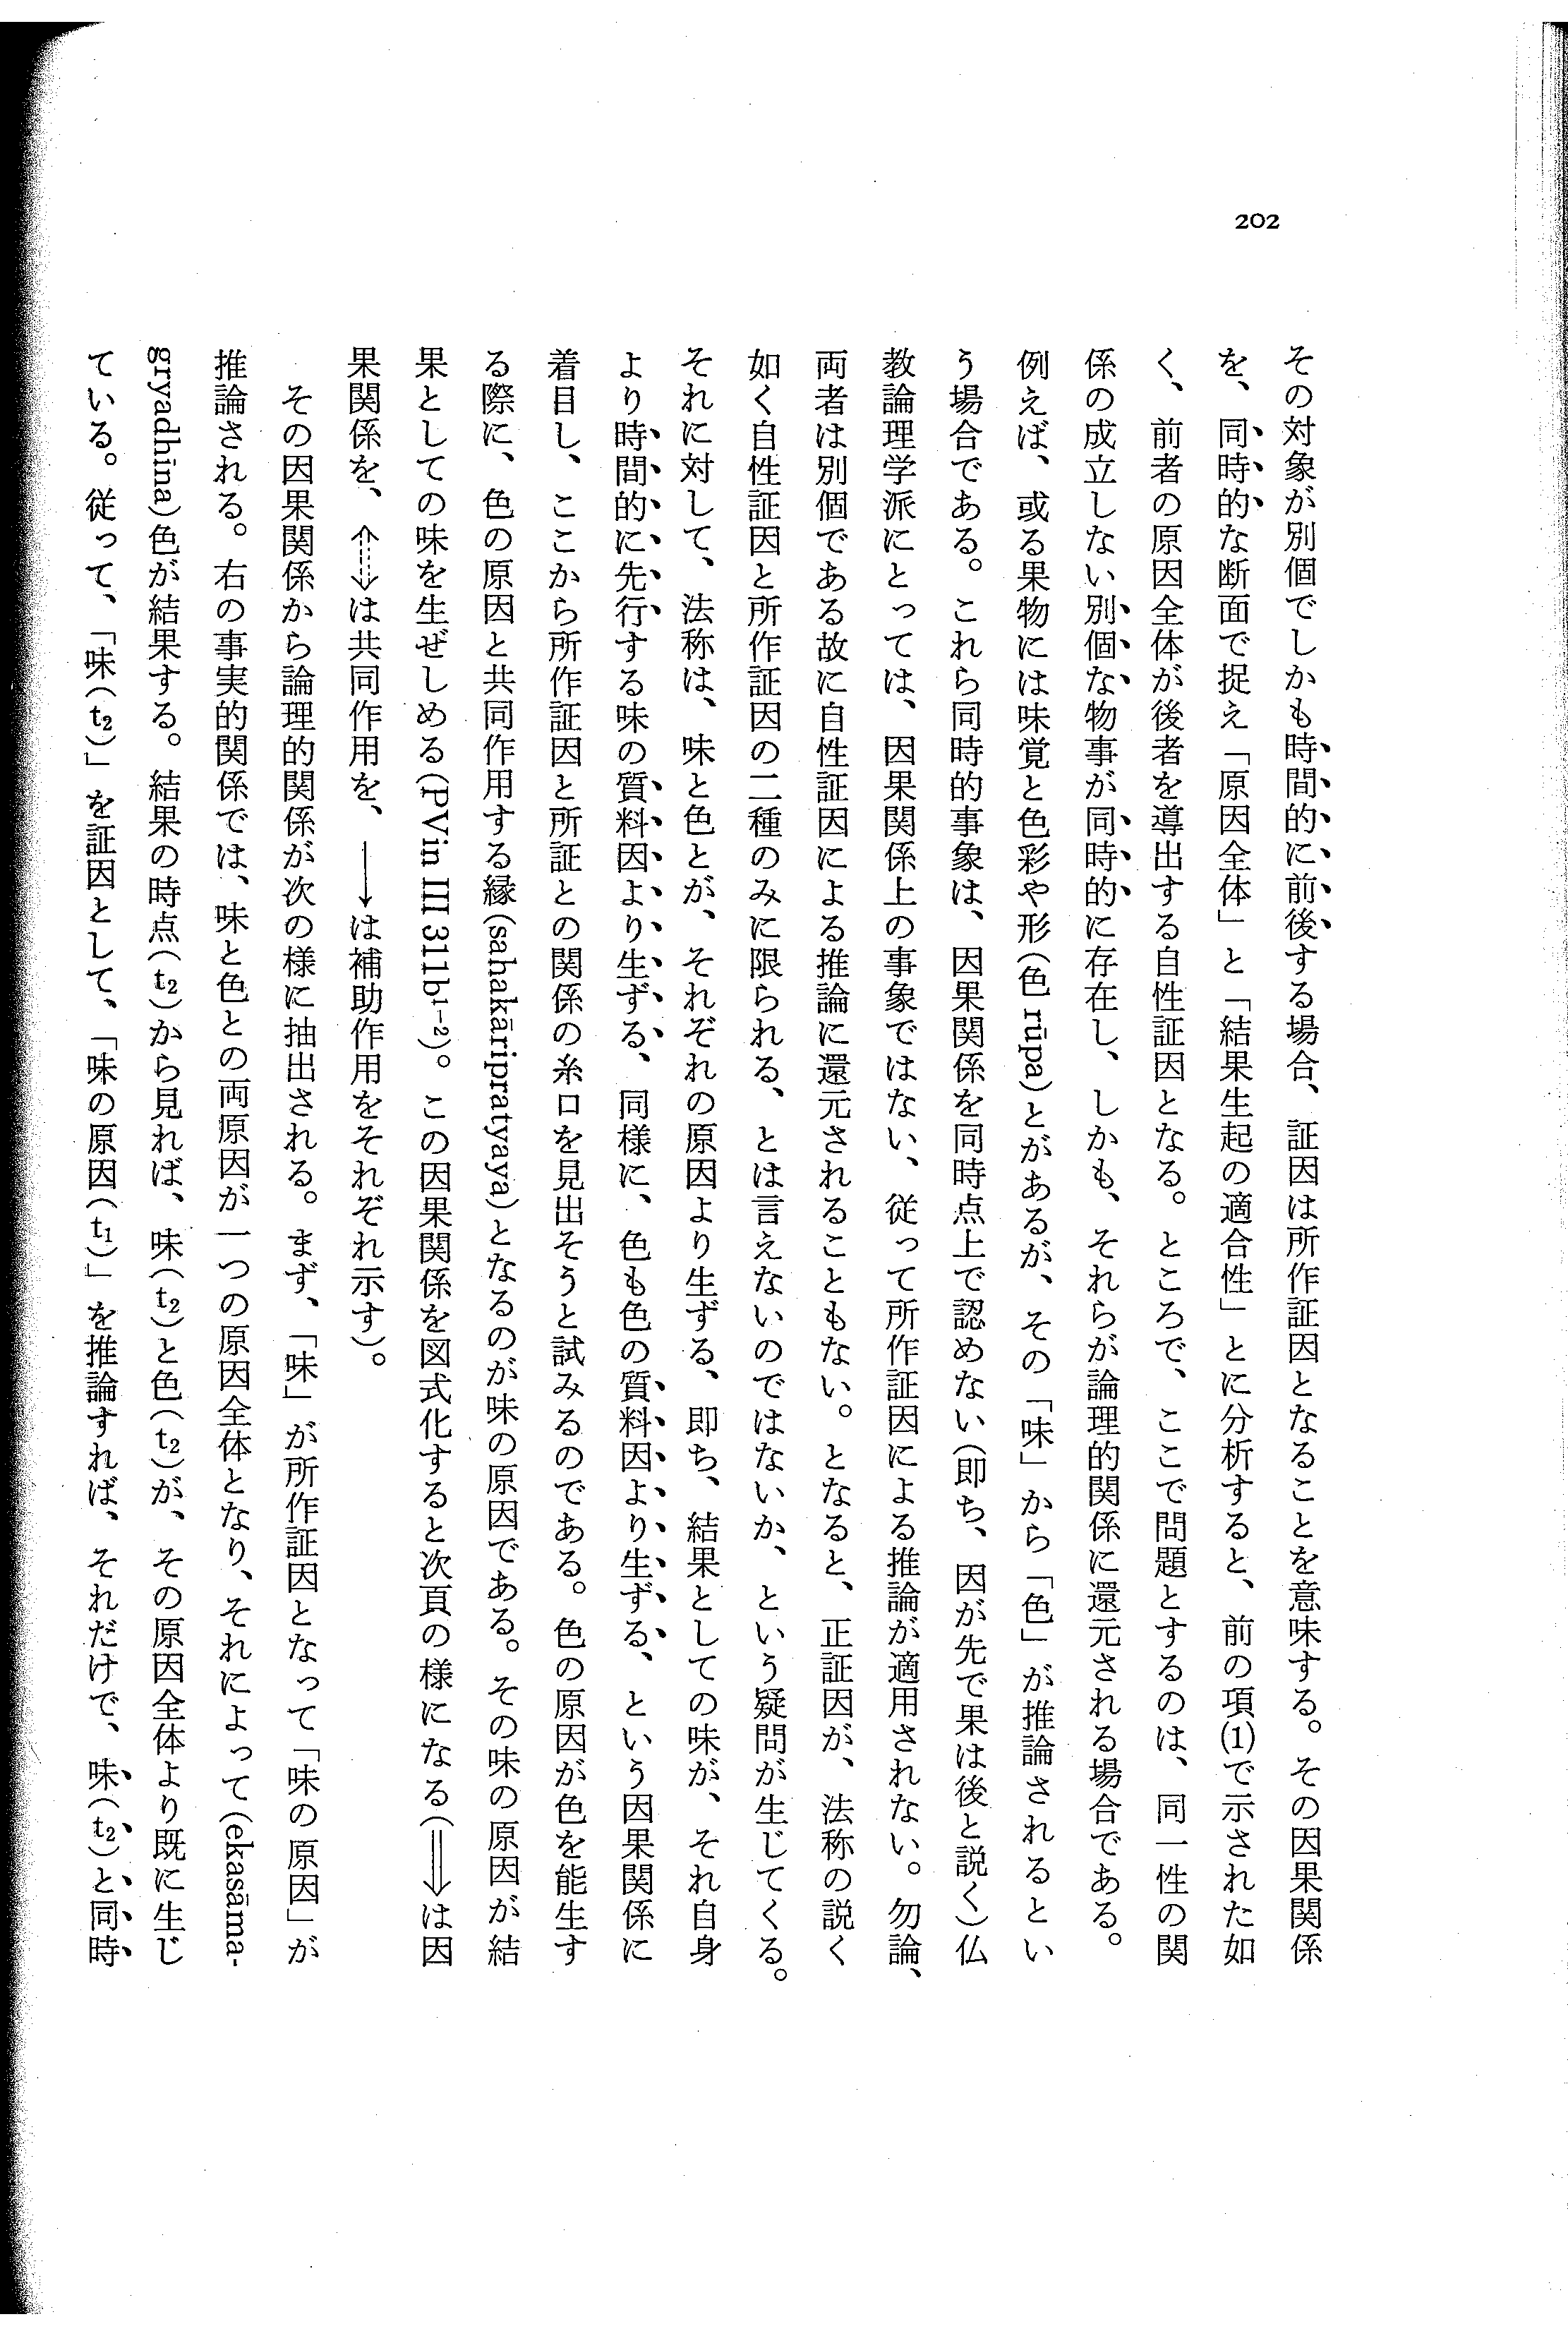 202
その対象が別個でしかも時間的に前後する場合、証因は所作証因となることを意味する。その因果関係
を、同時的な断面で捉え「原因全体」と「結果生起の適合性」とに分析すると、前の項(1)で示された如
く、前者の原因全体が後者を導出する自性証因となる。ところで、ここで問題とするのは、同一性の関
係の成立しない別個な物事が同時的に存在し、しかも、それらが論理的関係に還元される場合である。
例えば、或る果物には味覚と色彩や形(色 rūpa)とがあるが、その「味」から「色」が推論されるとい
う場合である。これら同時的事象は、因果関係を同時点上で認めない(即ち、因が先で果は後と説く)仏
教論理学派にとっては、因果関係上の事象ではない、従って所作証因による推論が適用されない。勿論、
両者は別個である故に自性証因による推論に還元されることもない。となると、正証因が、法称の説く
如く自性証因と所作証因の二種のみに限られる、とは言えないのではないか、という疑問が生じてくる。
それに対して、法称は、味と色とが、それぞれの原因より生ずる、即ち、結果としての味が、それ自身
より時間的に先行する味の質料因より生ずる、同様に、色も色の質料因より生ずる、という因果関係に
着目し、ここから所作証因と所証との関係の糸口を見出そうと試みるのである。色の原因が色を能生す
る際に、色の原因と共同作用する縁(sahakāripratyaya)となるのが味の原因である。その味の原因が結
果としての味を生ぜしめる(PVin III 311b1-2)。この因果関係を図式化すると次頁の様になる(⟹は因
果関係を、⇠⇢は共同作用を、⟶は補助作用をそれぞれ示す)。
その因果関係から論理的関係が次の様に抽出される。まず、「味」が所作証因となって「味の原因」が
推論される。右の事実的関係では、味と色との両原因が一つの原因全体となり、それによって(ekasāma-
gryadhīna)色が結果する。結果の時点(t₂)から見れば、味(t₂)と色(t₂)が、その原因全体より既に生じ
ている。従って、「味(t₂)」を証因として、「味の原因(t₁)」を推論すれば、それだけで、味(t₂)と同時